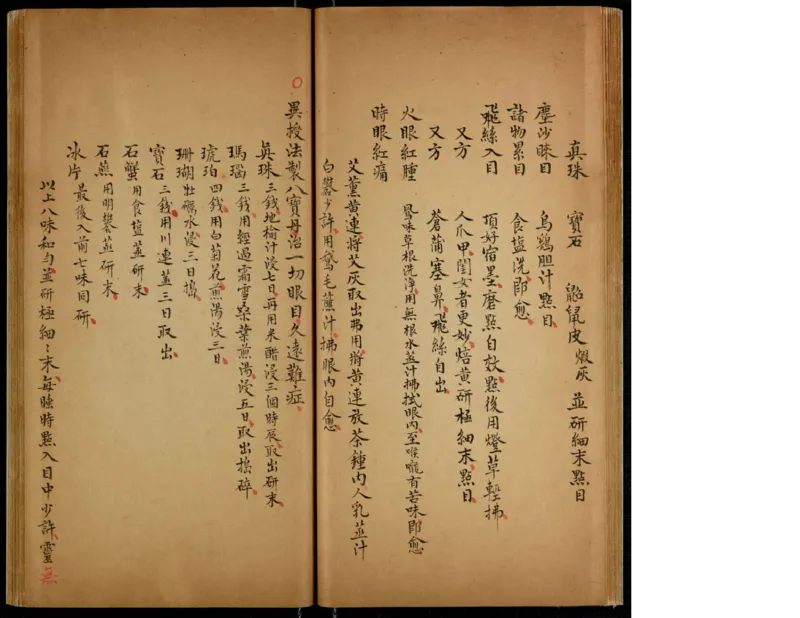 真珠 寶石 鼢鼠皮 煅灰 並研細末點目
塵沙眯目 烏鷄胆汁點目
諸物累目 食塩洗即愈
飛絲入目 頂好宿墨磨點自效點後用燈草輕拂
又方 人爪甲閨女者更妙焙黄研極細末點目
又方 菖蒲塞鼻飛絲自出
火眼紅腫 草根洗浄用無根水並汁拂拭眼内至喉嚨有苦味即愈
時眼紅痛 艾薰黄連将艾灰取出弗用将黄連放茶鍾内人乳並汁
白礬少許用鵞毛蘸汁拂眼内自愈
○異授法製八寶丹治一切眼目久遠難症
真珠 三錢地榆汁浸七日再用米醋浸三個時辰取出研末
瑪瑙 三錢用經過霜雪桑葉煎湯浸五日取出搗碎
琥珀 四錢用白菊花煎湯浸三日
珊瑚 牡礪水浸三日搗
寶石 三錢用川連並三日取出
石蟹 用食塩並研末
石燕 用明礬並研末
冰片 最後入前七味同研
以上八味和勻並研極細〻末每睡時點入目中少許靈無